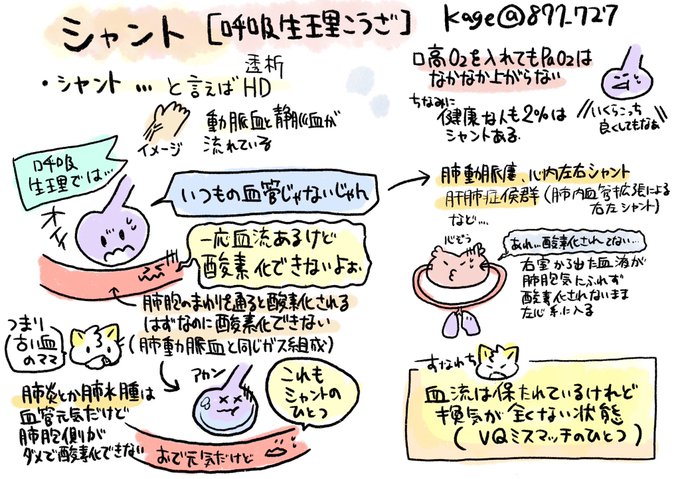 シャント [呼吸生理こうざ]
kage@897_727
・シャント … と言えば HD
透析
イメージ
動脈血と静脈血が
流れている
呼吸
生理では…
いつもの血管じゃないじゃん
オェ
一応血流あるけど
酸素化できないよぉ
肺胞のまわりを通ると酸素化される
はずなのに酸素化できない
(肺動脈血と同じガス組成)
つまり
古い血
のママ
肺炎とか肺水腫は
血管元気だけど
肺胞側が
ダメで酸素化できない
アカン
これも
シャントの
ひとつ
おで元気だけど
口高O2を入れてもPaO2は
なかなか上がらない
ちなみに
健康な人も2%は
シャントある.
いくらこっち
良くしてもなぁ
肺動脈瘻、心内左右シャント
肝肺症候群 (肺内血管拡張による
右左シャント)
など….
心ぞう
あれ…酸素化されてない…
右室から出た血液が
肺胞気にふれず
酸素化されないまま
左心系に入る
すなわち
血流は保たれているけれど
換気が全くない状態
(VQミスマッチのひとつ)